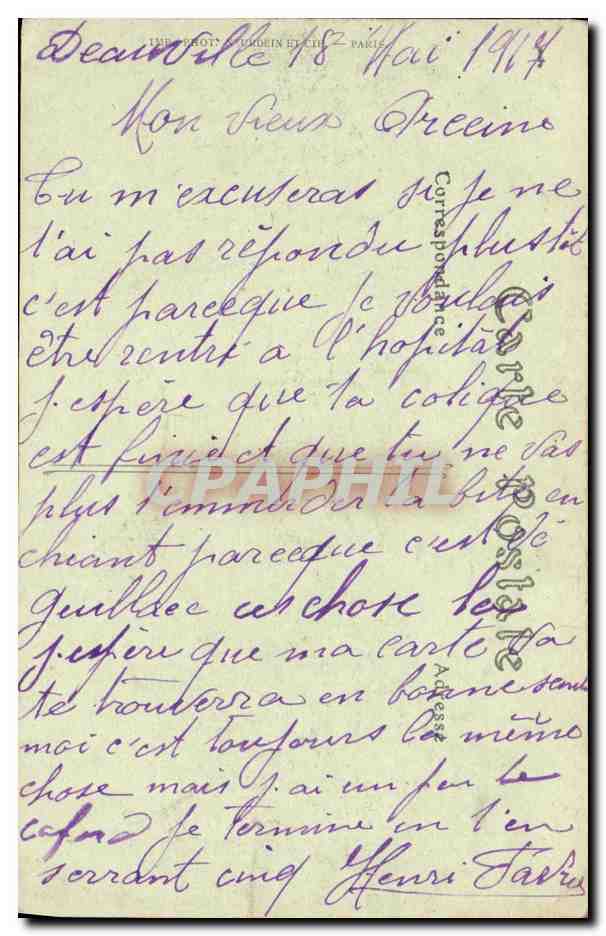 IMP. PHOT. NEURDEIN ET CIE. PARIS
Deauville 18 Mai 1917
Mon vieux
Tu m'excuseras si je ne
t'ai pas répondu plustôt
c'est parceque je voulais
être rentré a l'hopital
j'espère que ta colique
est finie et que tu ne vas
plus t'emmerder la bite en
chiant parceque c'est
chose
j'espère que ma carte va
te trouvera en bonne santé
moi c'est toujours la même
chose mais j'ai un peu le
cafard Je termine en t'en
serrant cinq Henri
Correspondance
Carte Postale
Adresse
CPAPHIL